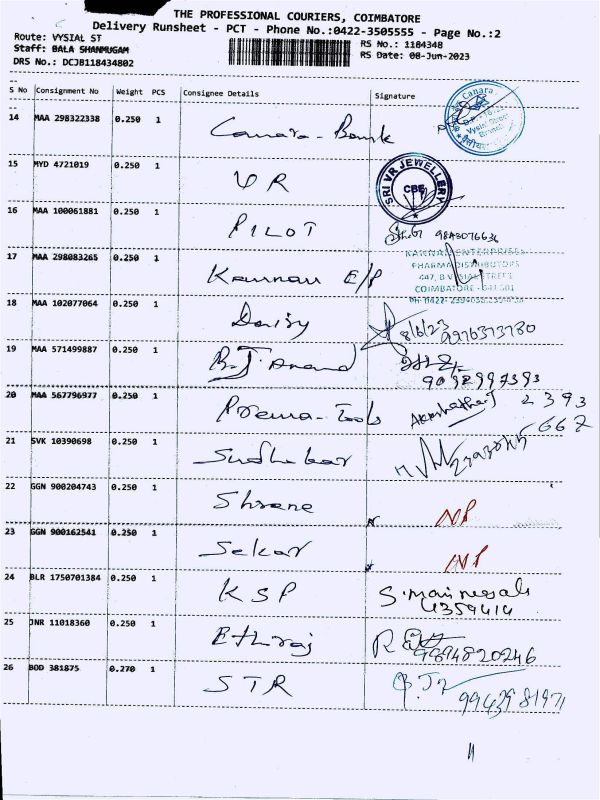 THE PROFESSIONAL COURIERS, COIMBATORE
Delivery Runsheet - PCT - Phone No.:0422-3505555 - Page No.:2
Route: VYSIAL ST
RS No.: 1184348
Staff: BALA SHANMUGAM
RS Date: 08-Jun-2023
DRS No.: DCJB118434802
S No Consignment No Weight PCS Consignee Details Signature
14 MAA 298322338 0.250 1 Canara-Bank
Canara
15 MYD 4721019 0.250 1 VR
SRI VR JEWELLERY CBE
16 MAA 100061881 0.250 1 PILOT 9843076636
17 MAA 298083265 0.250 1 Kannan E/P
KANNAN ENTERPRISES
PHARMA DISTRIBUTORS
447, B.VYSIAL STREET
COIMBATORE - 641001
18 MAA 102077064 0.250 1 Daisy 8/6/23
19 MAA 571499887 0.250 1 B.J. Anand
20 MAA 567796977 0.250 1 Prema-Tools 2393
667
21 SVK 10390698 0.250 1 Sudhakar
22 GGN 900204743 0.250 1 Shrene NP
23 GGN 900162541 0.250 1 Sekar NP
24 BLR 1750701384 0.250 1 KSP
4359414
25 JNR 11018360 0.250 1 Ethiraj 9894820246
26 BOD 381875 0.270 1 STR
9943981971